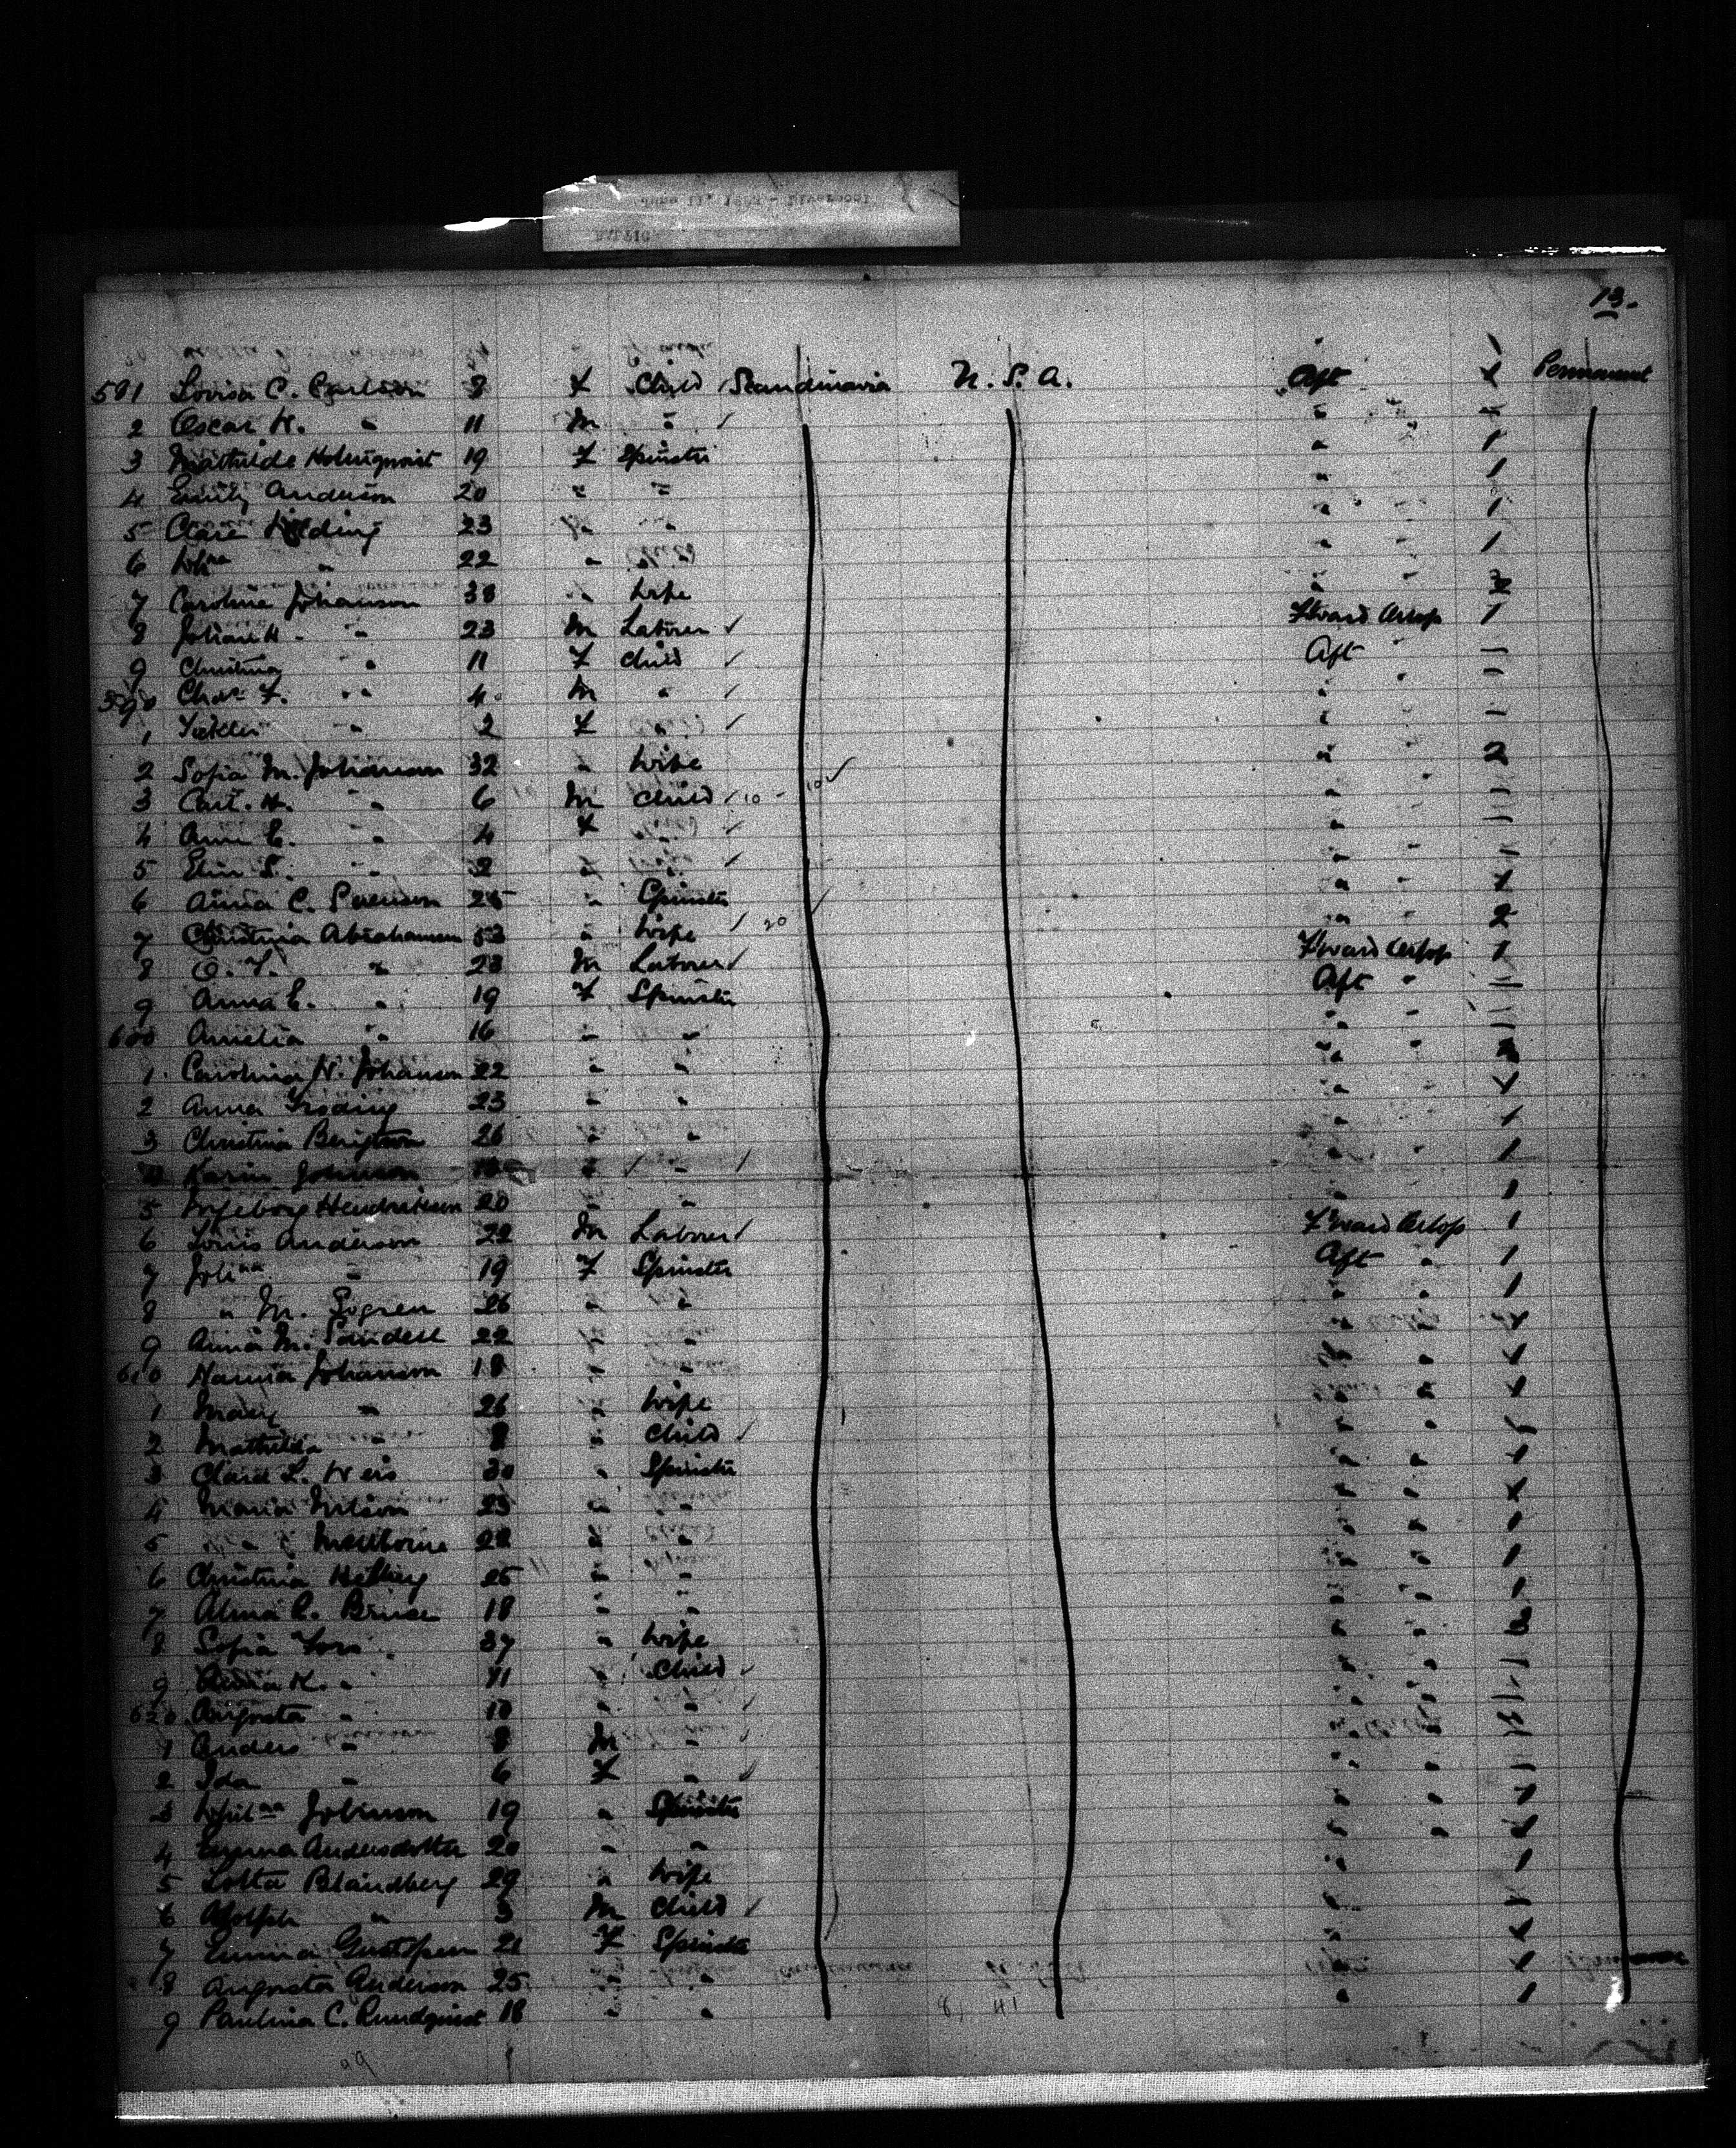 13.
591 Lovisa C. Carlson 8 F Child Scandinavia U.S.A. Aft 1 Permanent
2 Oscar W. " 11 M " " –
3 Mathilda Holmqvist 19 F Spinster " 1
4 Emily Anderson 20 " " " 1
5 Clara Hylding 23 " " " 1
6 " 22 " " " 1
7 Caroline Johanson 38 " Wife " "
8 Johan H. " 23 M Laborer F'ward Orlop 1
9 Christina " 11 F Child Aft " –
Chas F. " 4 M " " " –
1 " 2 F " " –
2 Sofia M. Johanson 32 " Wife " 2
3 Carl H. " 6 M Child 10 - 10 " " –
4 Ann E. " 4 F " " " –
5 Elin S. " 2 " " " " –
6 Anna C. Swenson 25 " Spinster " " 1
7 Christina Abrahamson 52 " Wife 20 " " 2
8 O. F. " 23 M Laborer F'ward Orlop 1
9 Anna E. " 19 F Spinster Aft " –
600 Amelia " 16 " " " " –
1 Carolina W. Johanson 22 " " " "
2 Anna Froding 23 " " " 1
3 Christina Bengtson 26 " " " 1
4 Karin Johnson " " " 1
5 Ingeborg Hendrikson 20 " " " 1
6 Louis Anderson 22 M Laborer F'ward Orlop 1
7 Joh.na " 19 F Spinster Aft " 1
8 " M. Sogren 26 " " " " 1
9 Anna M. Sandell 22 " " " " 1
610 Hanna Johanson 18 " " " " 1
1 Mary " 26 " Wife " " 1
2 Mathilda " 8 " Child " " –
3 Clara L. Weis 30 " Spinster " " 1
4 Maria Nilson 23 " " " " 1
5 " Mellborne 22 " " " " 1
6 Christina Helling 25 " " " " 1
7 Alma C. Bruse 18 " " " " 1
8 Sofia Fors 37 " Wife " " 3
9 Anna K. " 11 " Child " " –
620 Augusta " 10 " " " " –
1 Anders " 8 M " " "
2 Ida " 6 F " " " –
3 Johnson 19 " Spinster " " 1
4 Emma Andersdotter 20 " " " " 1
5 Lotta Blandberg 29 " Wife " 1
6 Adolph " 3 M Child " " –
7 Emma Gustafson 21 F Spinster " 1
8 Augusta Anderson 25 " " 1
9 Paulina C. Rundquist 18 " " " 1